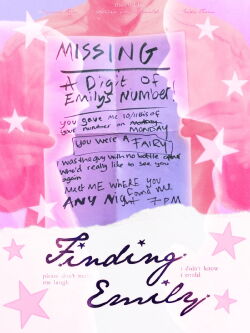 MISSING
A Digit of
Emily's Number!
you gave me 10/11ths of
your number on Monday
MONDAY
YOU WERE A FAIRY
I was the guy with no bottle
who'd really like to see you
again
MEET ME WHERE YOU
Found me
ANY NIGHT 7PM
Finding
Emily
i didn't know
me laugh